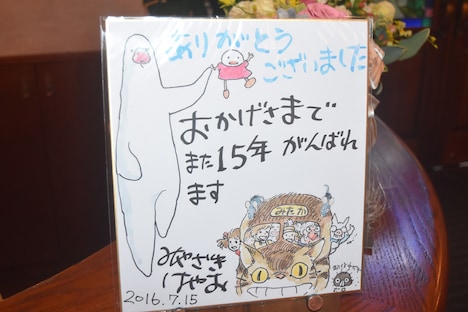 ありがとう
ございました
おかげさまで
また15年 がんばれ
ます
みたか
みやざき
はやお
2016.7.15